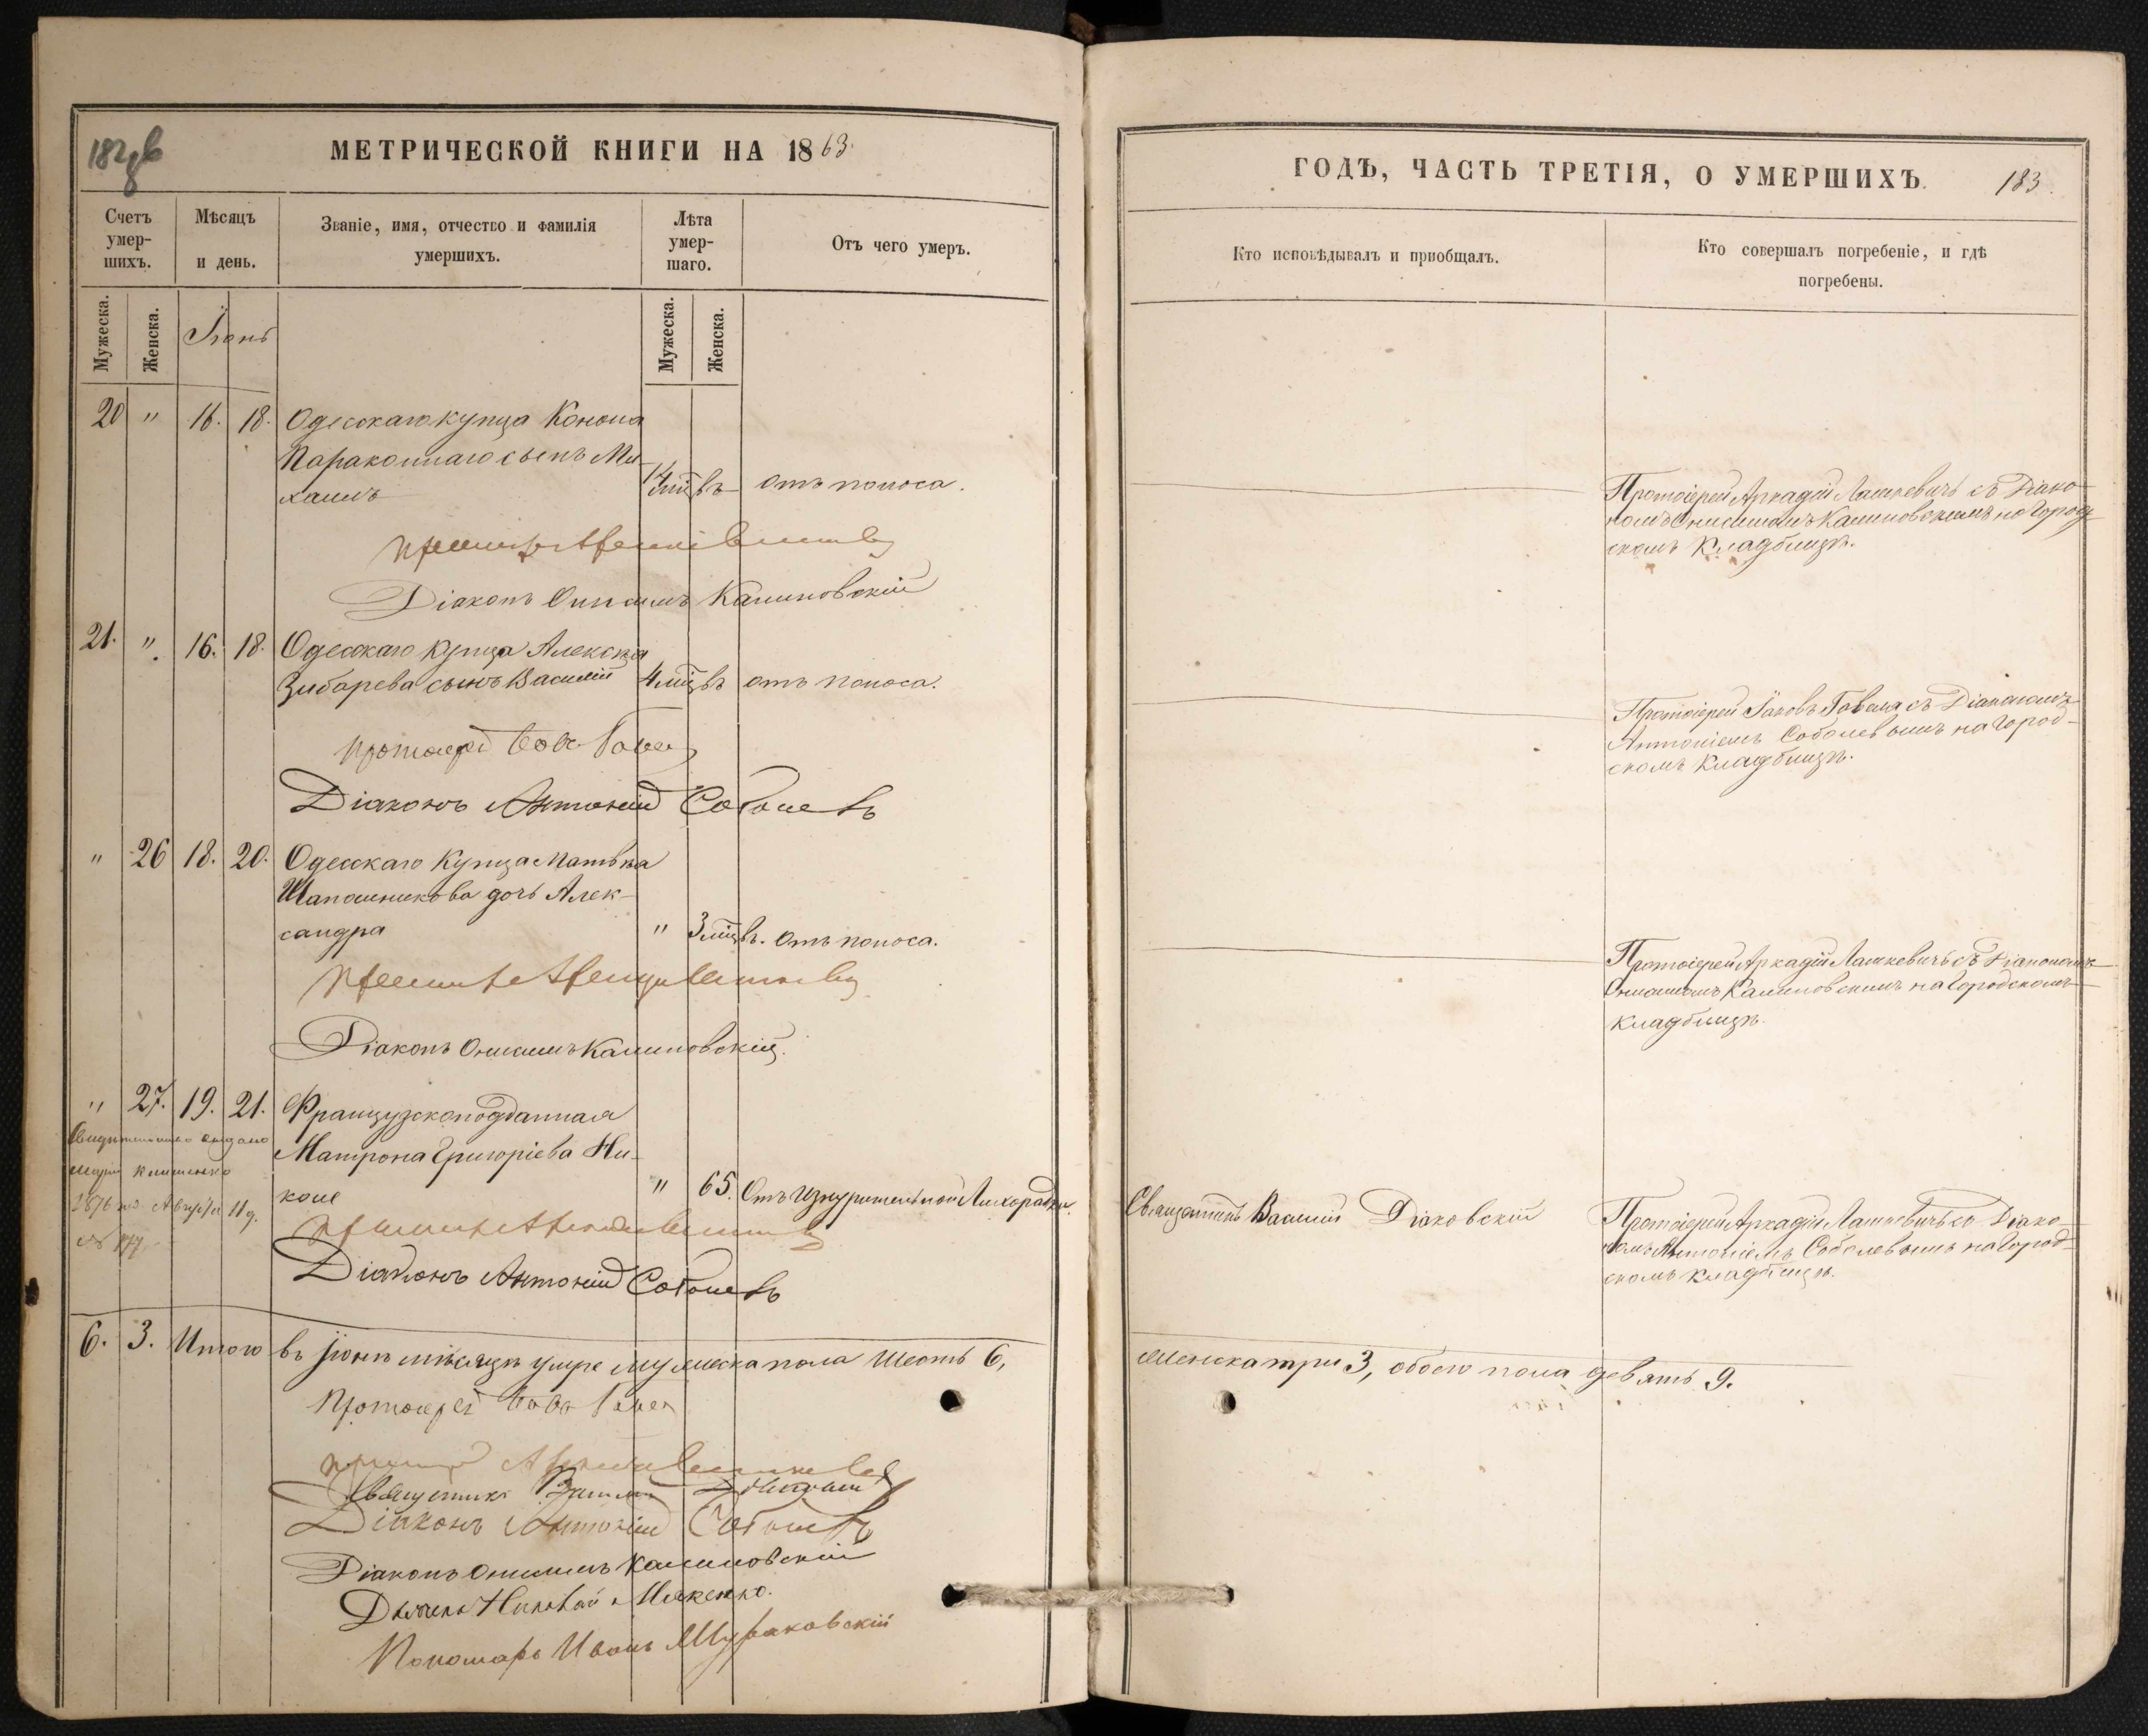 182 об
МЕТРИЧЕСКОЙ КНИГИ НА 1863.
Счетъ умер-шихъ.
Мѣсяцъ и день.
Званіе, имя, отчество и фамилія умершихъ.
Лѣта умер-шаго.
Отъ чего умеръ.
Мужеска.
Женска.
Іюнь
Мужеска.
Женска.
20 " 16. 18. Одесскаго купца Конона
сынъ Ми-
хаилъ
мцвъ отъ поноса.
Діаконъ Онисимъ Калиновскій
21. ". 16. 18. Одесскаго купца Алексѣя
Зибарева сынъ Василій 4 мцвъ отъ поноса.
Протоіерей Гавел
Діаконъ Антоній Соболевъ
" 26 18. 20. Одесскаго Купца Матвѣя
Шапошникова дочь Алек-
сандра " 3 мцвъ. отъ поноса.
Діаконъ Онисимъ Калиновскій.
" 27. 19. 21. Французскоподданная
Матрона Григоріева Ни-
коле " 65. Отъ Изнурительной Лихорадки.
Свидѣтельство выдано
1876 Августа 11 д.
№ 177
Діаконъ Антоній Соболевъ
6. 3. Итого въ Іюнѣ мѣсяцѣ умре мужеска пола Шесть 6,
Протоіерей
Священникъ Василій
Діаконъ Антоній Соболевъ
Діаконъ Онисимъ Калиновскій
Дьячекъ Николай
Пономарь Иванъ Мураковскій
ГОДЪ, ЧАСТЬ ТРЕТІЯ, О УМЕРШИХЪ.
183.
Кто исповѣдывалъ и пріобщалъ.
Кто совершалъ погребеніе, и гдѣ погребены.
Протоіерей Аркадій Лашкевичъ съ Діако-
номъ Онисимомъ Калиновскимъ на Город-
скомъ Кладбищѣ.
Протоіерей Іаковъ Гавела съ Діакономъ
Антоніемъ Соболевымъ на Город-
скомъ Кладбищѣ.
Протоіерей Аркадій Лашкевичъ съ Діакономъ
Онисимомъ Калиновскимъ на Городскомъ
Кладбищѣ.
Священникъ Василій Діаковскій
Протоіерей Аркадій Лашкевичъ со Діако-
номъ Антоніемъ Соболевымъ на Город-
скомъ кладбищѣ.
Женска три 3, обоего пола девять 9.